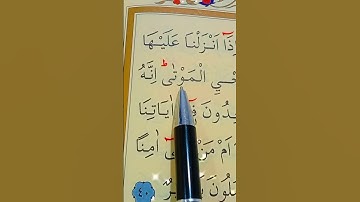 ذَٓا اَنْزَلْنَا عَلَيْهَا
حْيِ الْمَوْتٰىۜ اِنَّهُ
دُونَ اٰيَاتِنَا
اَمْ مَنْ اٰمِنًا
لُونَ
٤٠